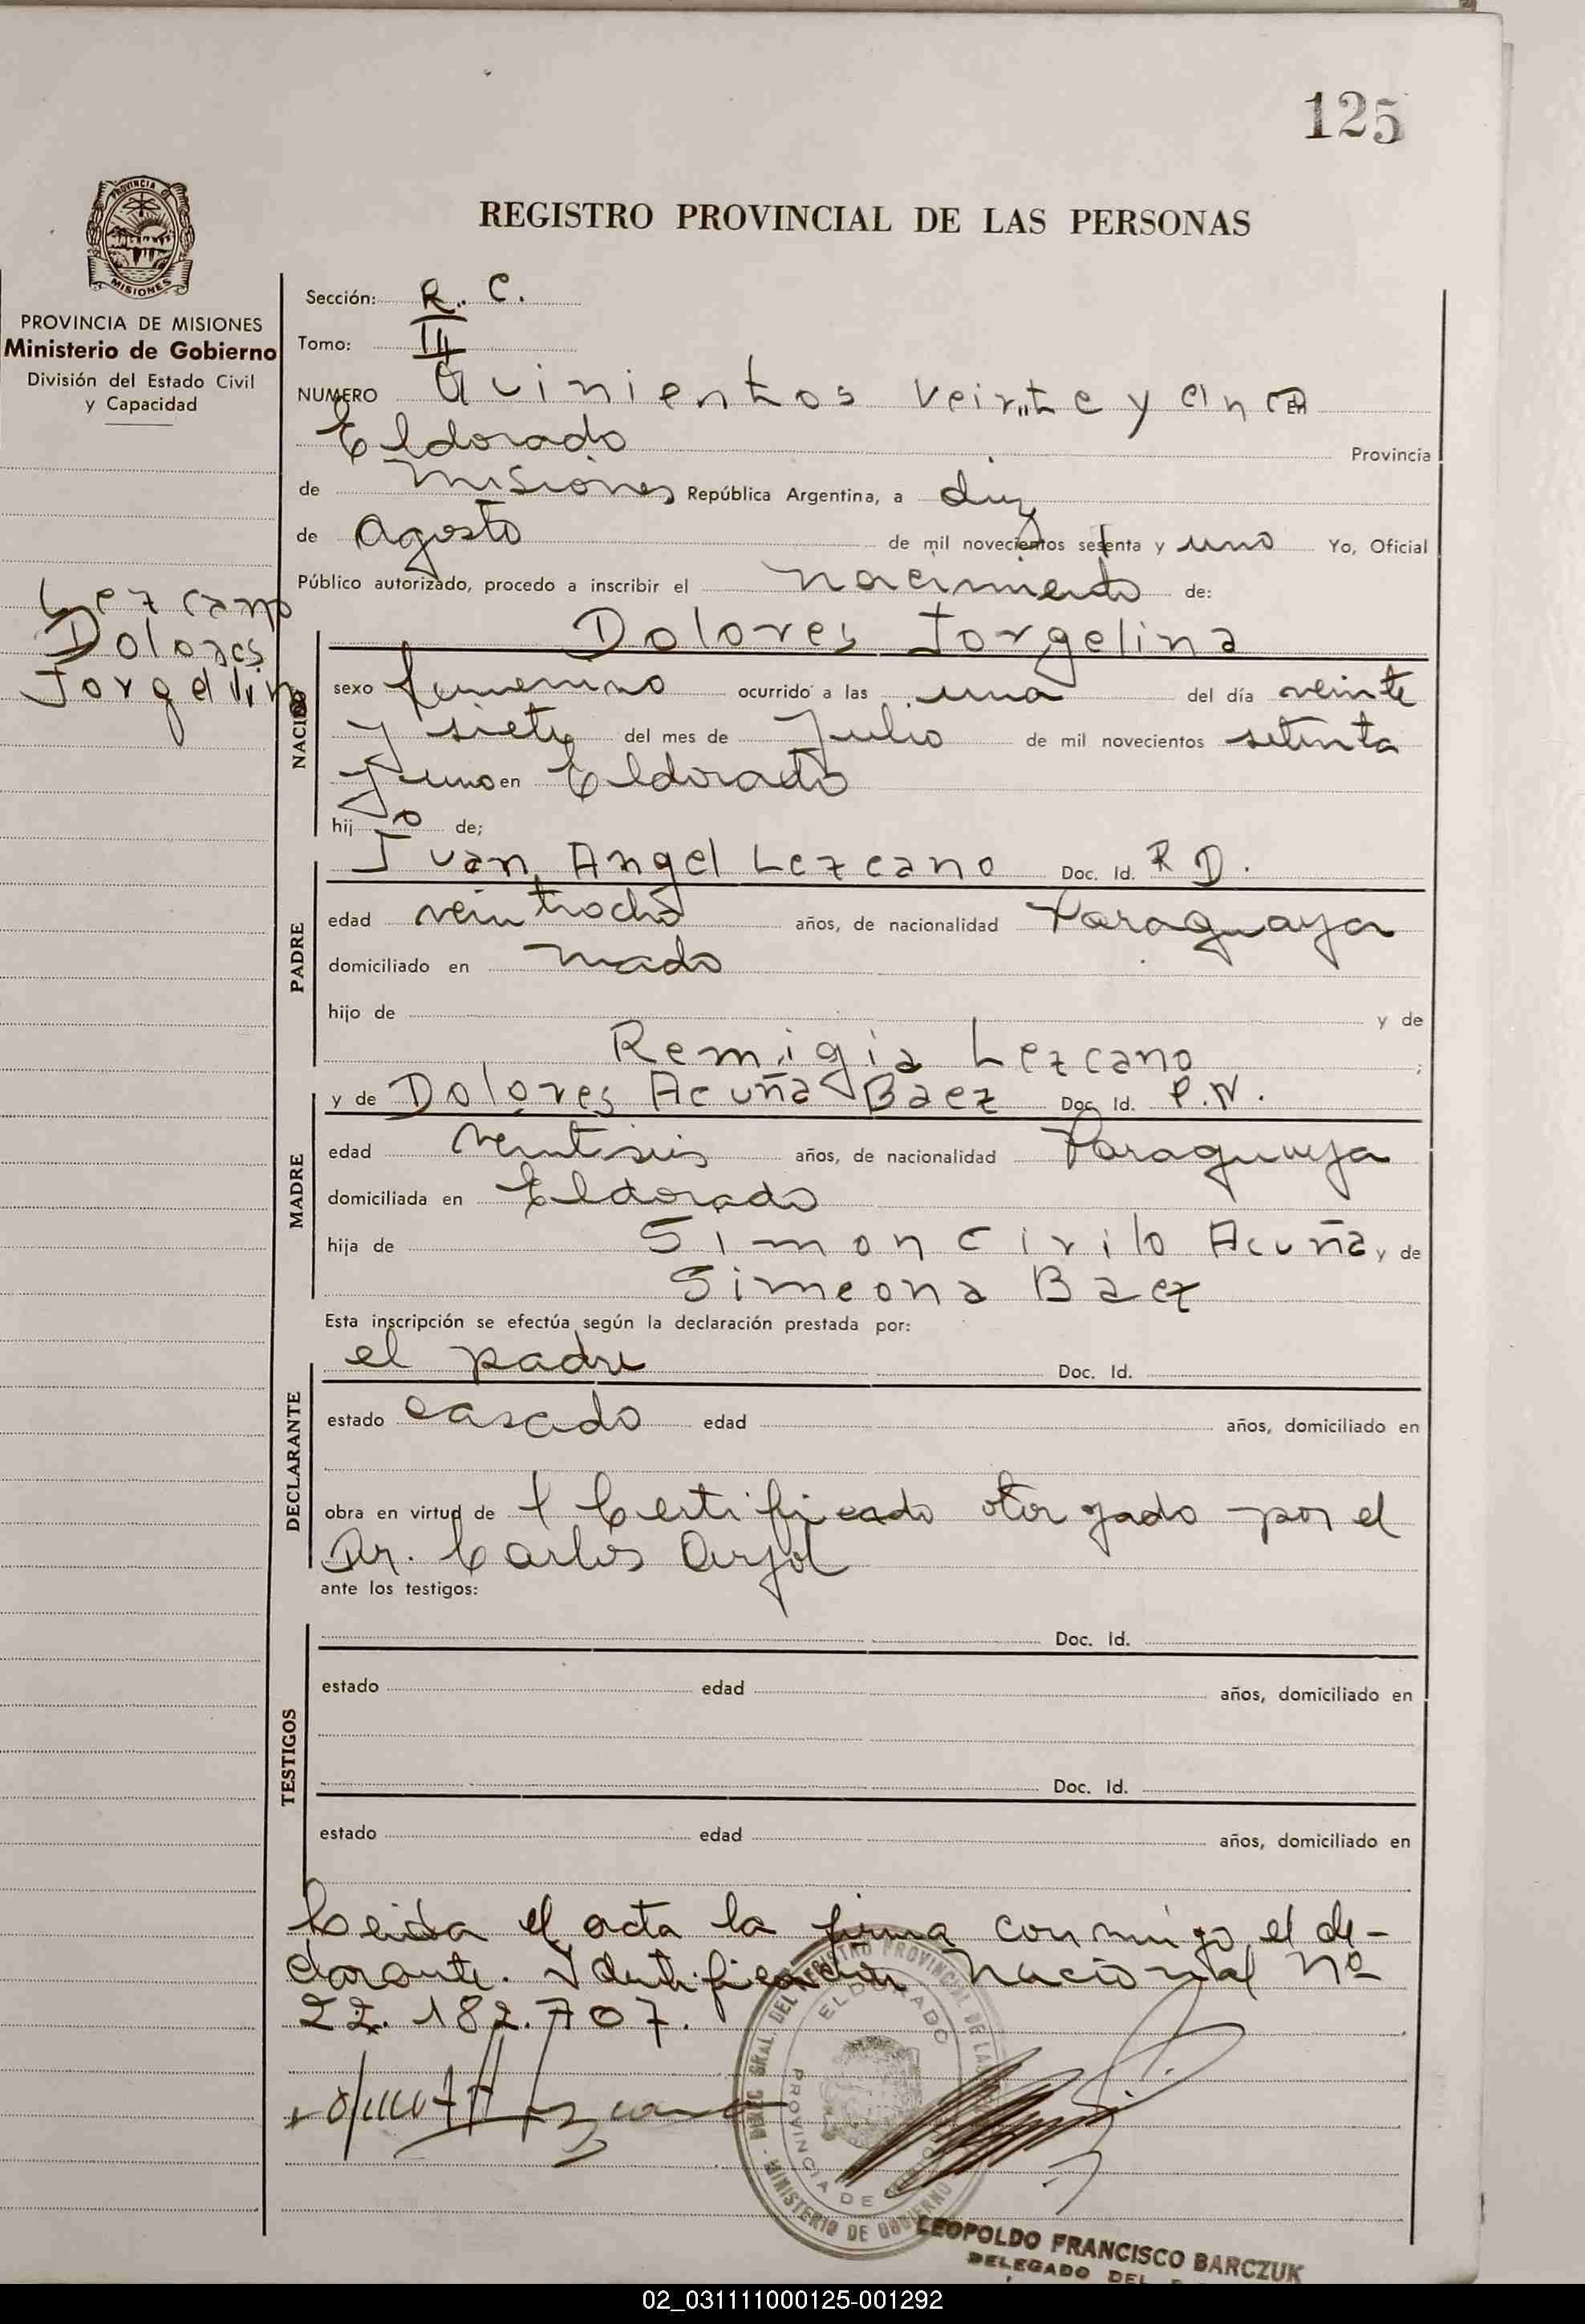 125
PROVINCIA DE MISIONES
REGISTRO PROVINCIAL DE LAS PERSONAS
PROVINCIA DE MISIONES
Ministerio de Gobierno
División del Estado Civil
y Capacidad
Sección: R. C.
Tomo: III
NUMERO Quinientos veinte y cinco EN
Eldorado Provincia
de Misiones República Argentina, a diez
de agosto de mil novecientos setenta y uno Yo, Oficial
Público autorizado, procedo a inscribir el nacimiento de:
Lezcano
Dolores
Jorgelina
NACIDO
Dolores Jorgelina
sexo femenino ocurrido a las una del día veinte
y siete del mes de Julio de mil novecientos setenta
y uno en Eldorado
hij o de;
PADRE
Juan Angel Lezcano Doc. Id. R D.
edad veintiocho años, de nacionalidad Paraguaya
domiciliado en Mado
hijo de y de
Remigia Lezcano ;
MADRE
y de Dolores Acuña Baez Doc. Id. P.N.
edad veintiseis años, de nacionalidad Paraguaya
domiciliada en Eldorado
hija de Simon Cirilo Acuña y de
Simeona Baez
Esta inscripción se efectúa según la declaración prestada por:
DECLARANTE
el padre Doc. Id.
estado casado edad años, domiciliado en
obra en virtud de 1 Certificado otorgado por el
Dr. Carlos
ante los testigos:
TESTIGOS
Doc. Id.
estado edad años, domiciliado en
Doc. Id.
estado edad años, domiciliado en
Leida el acta la firma conmigo el de-
clarante. Identificación Nacional Nº
22.182.707.
DIREC. GRAL. DEL REGISTRO PROVINCIAL DE LAS
ELDORADO
PROVINCIA DE
MINISTERIO DE GOBIERNO
LEOPOLDO FRANCISCO BARCZUK
DELEGADO DEL
02_031111000125-001292